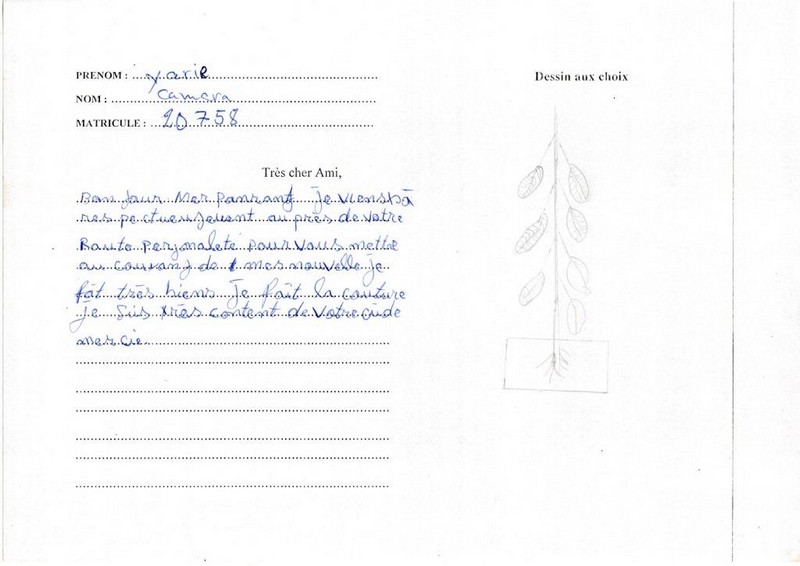 PRENOM : Yarie
NOM : Camara
MATRICULE : 20758
Dessin aux choix
Très cher Ami,
Bon jour Mer panrant je viens à
res pectueusement au près de votre
Raute personaleté pour vous mettre
au courant de mes nouvelle je
fât très biens je fait la couture
je suis très content de votre aide
mercie.